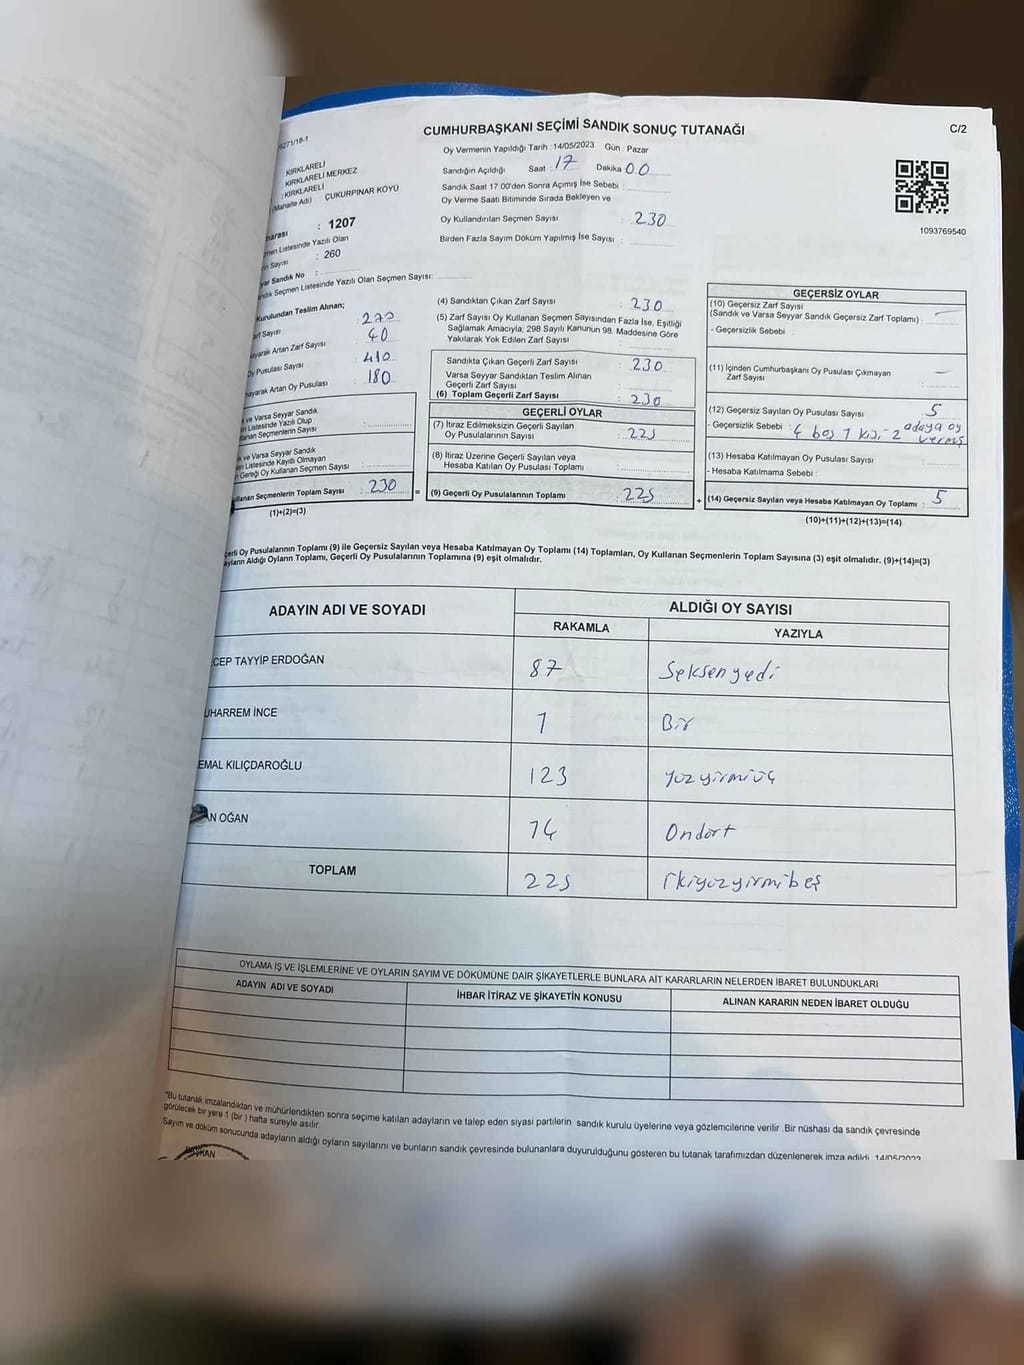 CUMHURBAŞKANI SEÇİMİ SANDIK SONUÇ TUTANAĞI
C/2
Oy Vermenin Yapıldığı Tarih :14/05/2023 Gün : Pazar
Sandığın Açıldığı Saat : 17 Dakika 00
Sandık Saat 17:00'den Sonra Açımış İse Sebebi :
Oy Verme Saati Bitiminde Sırada Bekleyen ve
Oy Kullandırılan Seçmen Sayısı : 230
Birden Fazla Sayım Döküm Yapılmış İse Sayısı :
1093769540
KIRKLARELİ
KIRKLARELİ MERKEZ
: KIRKLARELİ
(Mahalle Adı) : ÇUKURPINAR KÖYÜ
: 1207
Listesinde Yazılı Olan
Sayısı : 260
Sandık No :
Seçmen Listesinde Yazılı Olan Seçmen Sayısı:
Kurulundan Teslim Alınan;
Zarf Sayısı 270
Artan Zarf Sayısı 40
Oy Pusulası Sayısı 410
Artan Oy Pusulası 180
ve Varsa Seyyar Sandık
Listesinde Yazılı Olup
Seçmenlerin Sayısı
ve Varsa Seyyar Sandık
Listesinde Kayıtlı Olmayan
Gereği Oy Kullanan Seçmen Sayısı
Seçmenlerin Toplam Sayısı : 230
(1)+(2)=(3)
(4) Sandıktan Çıkan Zarf Sayısı : 230
(5) Zarf Sayısı Oy Kullanan Seçmen Sayısından Fazla İse, Eşitliği
Sağlamak Amacıyla; 298 Sayılı Kanunun 98. Maddesine Göre
Yakılarak Yok Edilen Zarf Sayısı :
Sandıkta Çıkan Geçerli Zarf Sayısı : 230
Varsa Seyyar Sandıktan Teslim Alınan
Geçerli Zarf Sayısı :
(6) Toplam Geçerli Zarf Sayısı : 230
GEÇERLİ OYLAR
(7) İtiraz Edilmeksizin Geçerli Sayılan
Oy Pusulalarının Sayısı : 225
(8) İtiraz Üzerine Geçerli Sayılan veya
Hesaba Katılan Oy Pusulası Toplamı :
= (9) Geçerli Oy Pusulalarının Toplamı : 225
GEÇERSİZ OYLAR
(10) Geçersiz Zarf Sayısı
(Sandık ve Varsa Seyyar Sandık Geçersiz Zarf Toplamı) : —
- Geçersizlik Sebebi :
(11) İçinden Cumhurbaşkanı Oy Pusulası Çıkmayan
Zarf Sayısı : —
(12) Geçersiz Sayılan Oy Pusulası Sayısı : 5
- Geçersizlik Sebebi : 4 boş 1 kişi 2 adaya oy
vermiş
(13) Hesaba Katılmayan Oy Pusulası Sayısı :
- Hesaba Katılmama Sebebi :
+ (14) Geçersiz Sayılan veya Hesaba Katılmayan Oy Toplamı : 5
(10)+(11)+(12)+(13)=(14)
Oy Pusulalarının Toplamı (9) ile Geçersiz Sayılan veya Hesaba Katılmayan Oy Toplamı (14) Toplamları, Oy Kullanan Seçmenlerin Toplam Sayısına (3) eşit olmalıdır. (9)+(14)=(3)
Aldığı Oyların Toplamı, Geçerli Oy Pusulalarının Toplamına (9) eşit olmalıdır.
ADAYIN ADI VE SOYADI
ALDIĞI OY SAYISI
RAKAMLA YAZIYLA
CEP TAYYİP ERDOĞAN 87 Seksenyedi
UHARREM İNCE 1 Bir
EMAL KILIÇDAROĞLU 123 Yüzyirmiüç
AN OĞAN 14 Ondört
TOPLAM 225 İkiyüzyirmibeş
OYLAMA İŞ VE İŞLEMLERİNE VE OYLARIN SAYIM VE DÖKÜMÜNE DAİR ŞİKAYETLERLE BUNLARA AİT KARARLARIN NELERDEN İBARET BULUNDUKLARI
ADAYIN ADI VE SOYADI İHBAR İTİRAZ VE ŞİKAYETİN KONUSU ALINAN KARARIN NEDEN İBARET OLDUĞU
"Bu tutanak imzalandıktan ve mühürlendikten sonra seçime katılan adayların ve talep eden siyasi partilerin sandık kurulu üyelerine veya gözlemcilerine verilir. Bir nüshası da sandık çevresinde
görülecek bir yere 1 (bir ) hafta süreyle asılır.
Sayım ve döküm sonucunda adayların aldığı oyların sayılarını ve bunların sandık çevresinde bulunanlara duyurulduğunu gösteren bu tutanak tarafımızdan düzenlenerek imza edildi. 14/05/2023